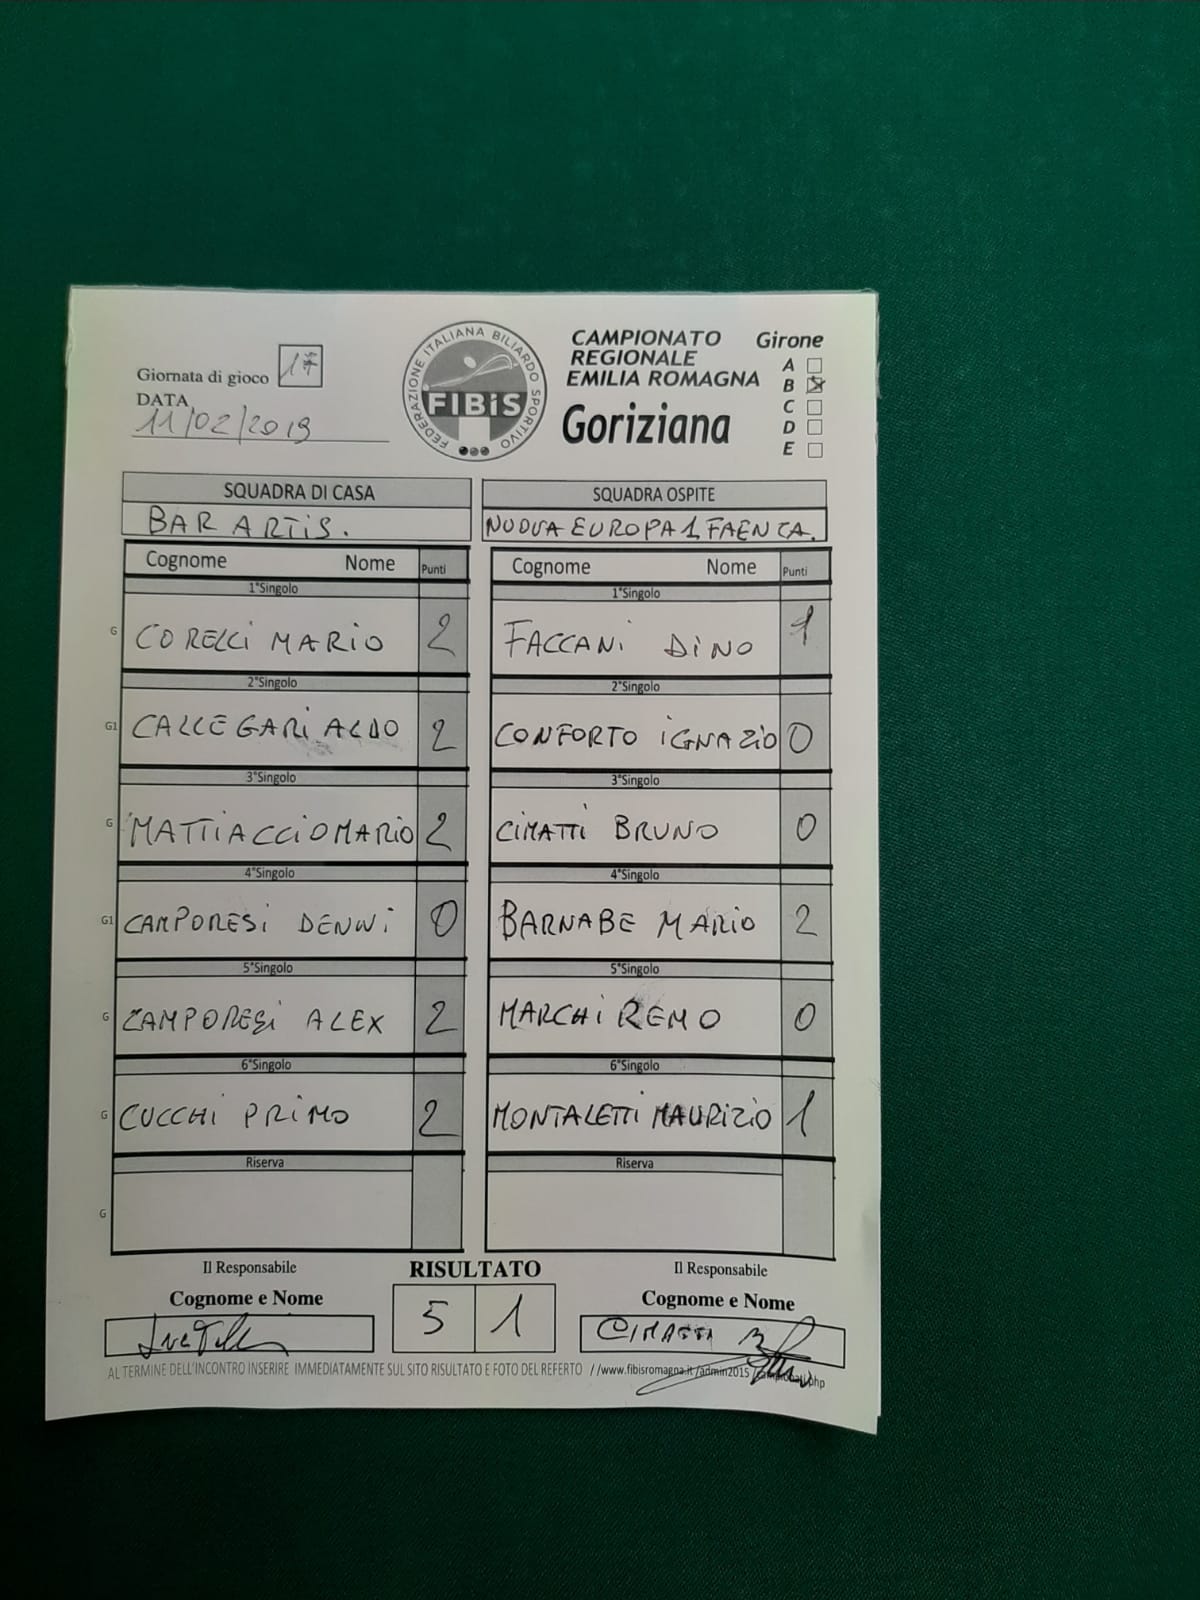 Giornata di gioco 17
DATA
11/02/2019
FEDERAZIONE ITALIANA BILIARDO SPORTIVO
FIBiS
CAMPIONATO
REGIONALE
EMILIA ROMAGNA
Goriziana
Girone
A
B
C
D
E
SQUADRA DI CASA
BAR ARTiS.
SQUADRA OSPITE
NUOVA EUROPA 1 FAENZA.
Cognome Nome Punti
Cognome Nome Punti
1°Singolo
1°Singolo
G CORELLI MARIO 2
FACCANI DINO 1
2°Singolo
2°Singolo
G1 CALLEGARI ALDO 2
CONFORTO IGNAZIO 0
3°Singolo
3°Singolo
G MATTIACCIO MARIO 2
CIMATTI BRUNO 0
4°Singolo
4°Singolo
G1 CAMPORESI DENNI 0
BARNABE MARIO 2
5°Singolo
5°Singolo
G CAMPORESI ALEX 2
MARCHI REMO 0
6°Singolo
6°Singolo
G CUCCHI PRIMO 2
MONTALETTI MAURIZIO 1
Riserva
Riserva
G
Il Responsabile
Cognome e Nome
RISULTATO
5 1
Il Responsabile
Cognome e Nome
CIMATTI
AL TERMINE DELL'INCONTRO INSERIRE IMMEDIATAMENTE SUL SITO RISULTATO E FOTO DEL REFERTO //www.fibisromagna.it/admin2015/campionati.php